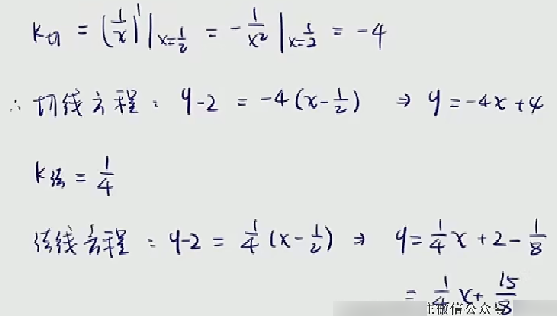 K切 = (1/x)'|x=1/2 = -1/x²|x=1/2 = -4
∴ 切线方程：y-2 = -4(x-1/2) ⇒ y=-4x+4
K法 = 1/4
法线方程：y-2 = 1/4(x-1/2) ⇒ y=1/4x+2-1/8
= 1/4x+15/8
微信公众号